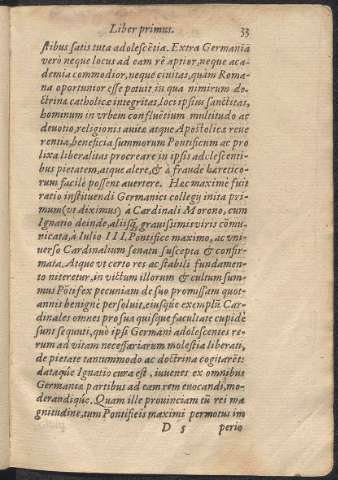 Liber primus. 33
stibus satis tuta adolescẽtia. Extra Germaniã
verò neque locus ad eam rẽ aptior, neque aca-
demia commodior, neque ciuitas, quàm Roma-
na oportunior esse potuit in qua nimirum do-
ctrina catholicæ integritas, loci ipsius sanctitas,
hominum in vrbem confluẽtium multitudo ac
deuotio, religionis auitæ atque Apostolicæ reue
rentia, beneficia summorum Pontificum ac pro
lixa liberalitas procreare in ipsis adolescenti-
bus pietatem, atque alere, & à fraude hæretico-
rum facilè possent auertere. Hæc maximè fuit
ratio instituendi Germanici collegij inita pri-
mum (vt diximus) à Cardinali Morono, cum
Ignatio deinde, aliisq́; grauissimis viris cõmu-
nicata, à Iulio III, Pontifice maximo, ac vni-
uerso Cardinalium senatu suscepta & confir-
mata. Atque vt certo res ac stabili fundamen-
to niteretur, in victum illorum & cultum sum-
mus Põtifex pecuniam de suo promissam quot-
annis benignè persoluit, eiusq́ue exemplũ Car-
dinales omnes pro sua quisque facultate cupidè
sunt sequuti, quò ipsi Germani adolescentes re-
rum ad vitam necessariarum molestia liberati,
de pietate tantummodo ac doctrina cogitarẽt:
dataq́ue Ignatio cura est, iuuenes ex omnibus
Germaniæ partibus ad eam rem euocandi, mo-
derandiq́ue. Quam ille prouinciam tũ rei ma
gnitudine, tum Pontificis maximi permotus im
D 5 perio